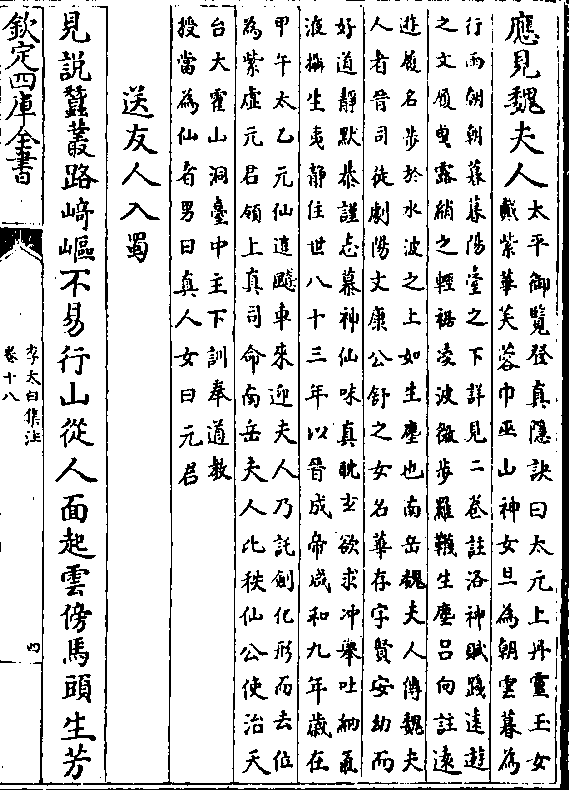 應見魏夫人太平御覽登真隱訣曰太元上丹靈玉女
戴紫華芙蓉巾巫山神女旦為朝雲暮為
行雨朝朝暮暮陽臺之下詳見二卷註洛神賦踐遠遊
之文履曳露綃之輕裾凌波微步羅韈生塵吕向註遠
遊履名步於水波之上如生塵也南岳魏夫人傳魏夫
人者晉司徒劇陽文康公舒之女名華存字賢安幼而
好道靜默恭謹志慕神仙味真耽玄欲求冲舉吐納氣
液攝生夷静住世八十三年以晉成帝咸和九年歲在
甲午太乙元仙遣飈車來迎夫人乃託劍化形而去位
為紫虛元君領上真司命南岳夫人比秩仙公使治天
台大霍山洞臺中主下訓奉道教
授當為仙者男曰真人女曰元君
送友人入蜀
見說蠶叢路崎嶇不易行山從人面起雲傍馬頭生芳
欽定四庫全書
李太白集注
卷十八
四